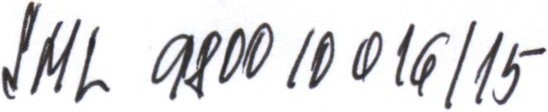 SML 9800 10 016/15